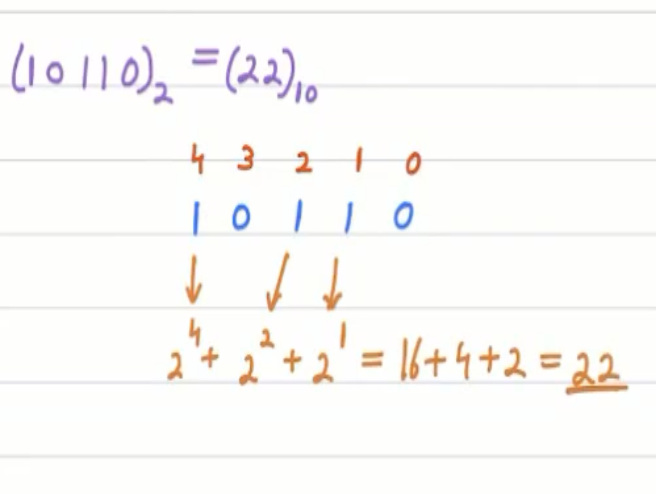 (10110)₂ = (22)₁₀
4 3 2 1 0
1 0 1 1 0
↓ ↓ ↓
2⁴ + 2² + 2¹ = 16 + 4 + 2 = 22